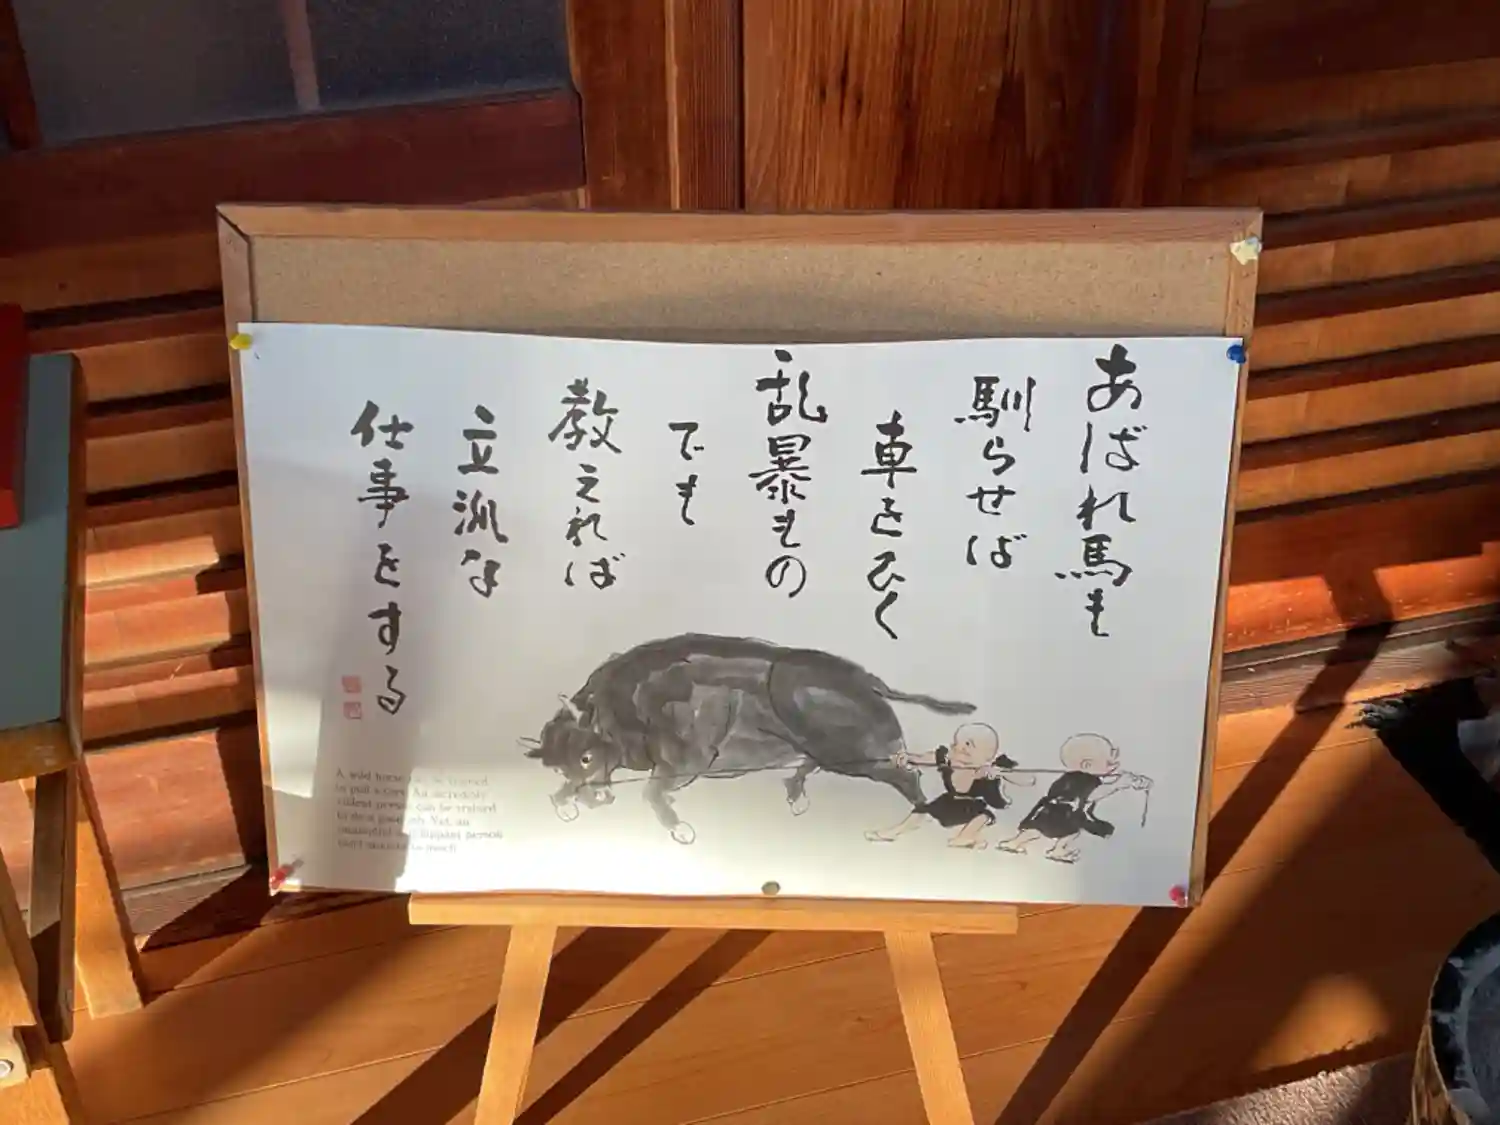 あばれ馬も
馴らせば
車をひく
乱暴もの
でも
教えれば
立派な
仕事をする
A wild horse can be trained
to pull a cart. An incredibly
violent person can be trained
to do a good job. Yet, an
and flippant person